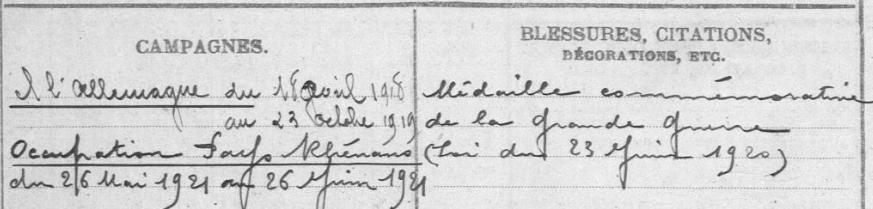 CAMPAGNES.
BLESSURES, CITATIONS,
DÉCORATIONS, ETC.
A l'Allemagne du 18 avril 1918
au 23 Octobre 1919
Occupation Pays Rhénans
du 26 Mai 1921 au 26 Juin 1921
Médaille commémorative
de la grande guerre
(Loi du 23 Juin 1920)